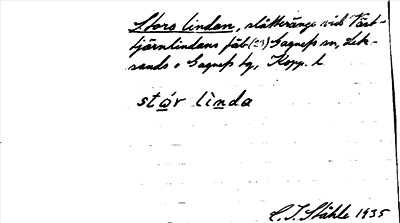 Stora lindan, slåtteränge vid Väst-
tjärnlindans fäb (21) Gagnefs sn, Lek-
sands o Gagnefs tg, Kopp. l
stór linda
C. I. Ståhle 1935